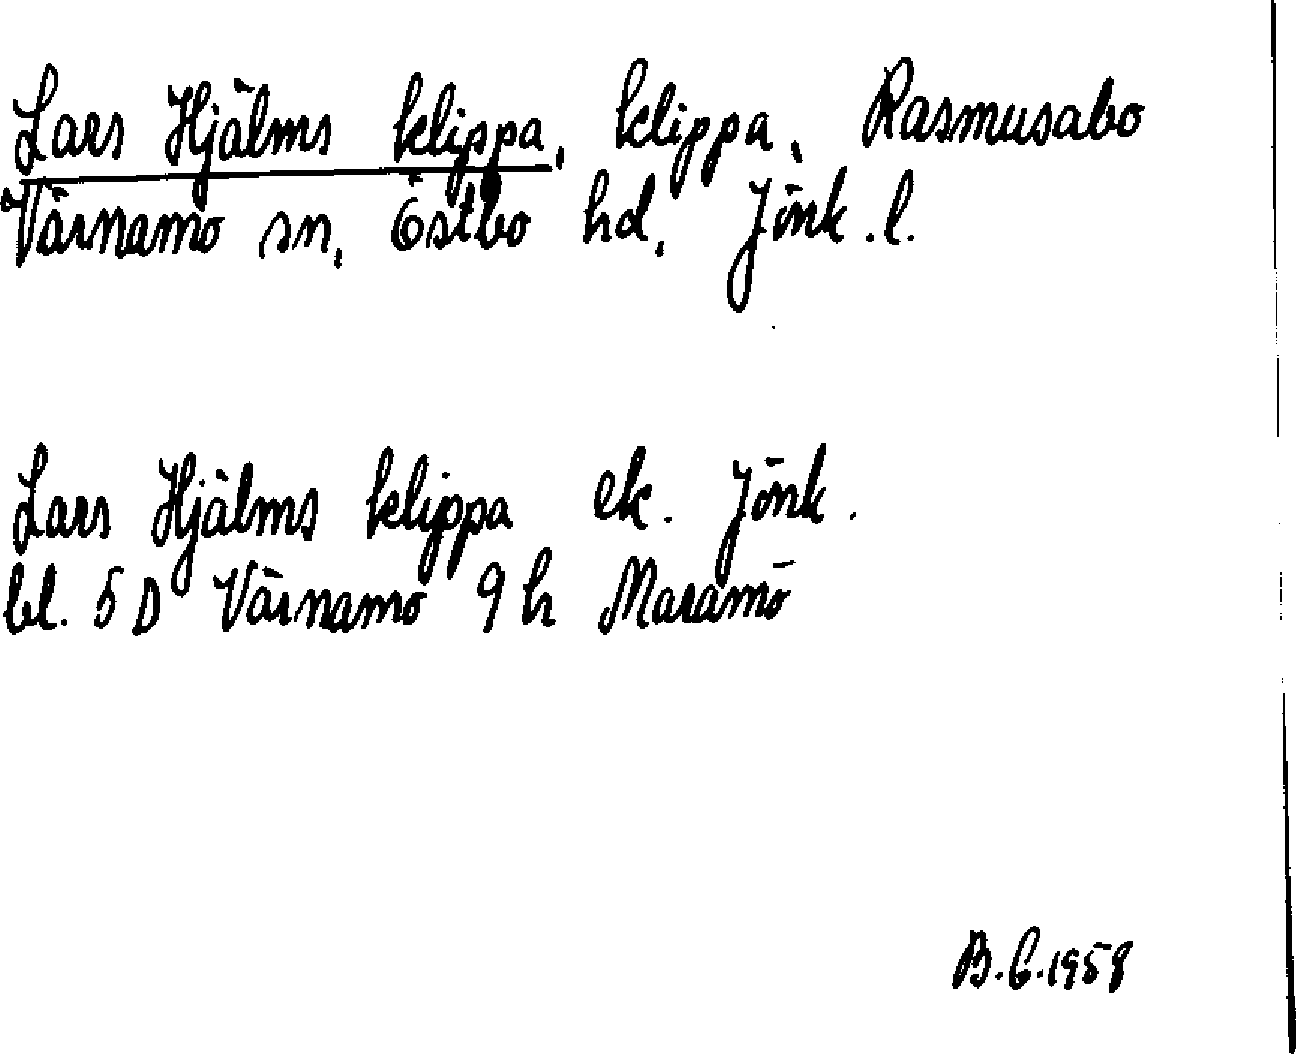 Lars Hjälms klippa, klippa, Rasmusabo
Värnamo sn, Östbo hd, Jönk. l.
Lars Hjälms klippa ek. Jönk.
bl. 5 D Värnamo 9 h Maramö
B. G. 1958